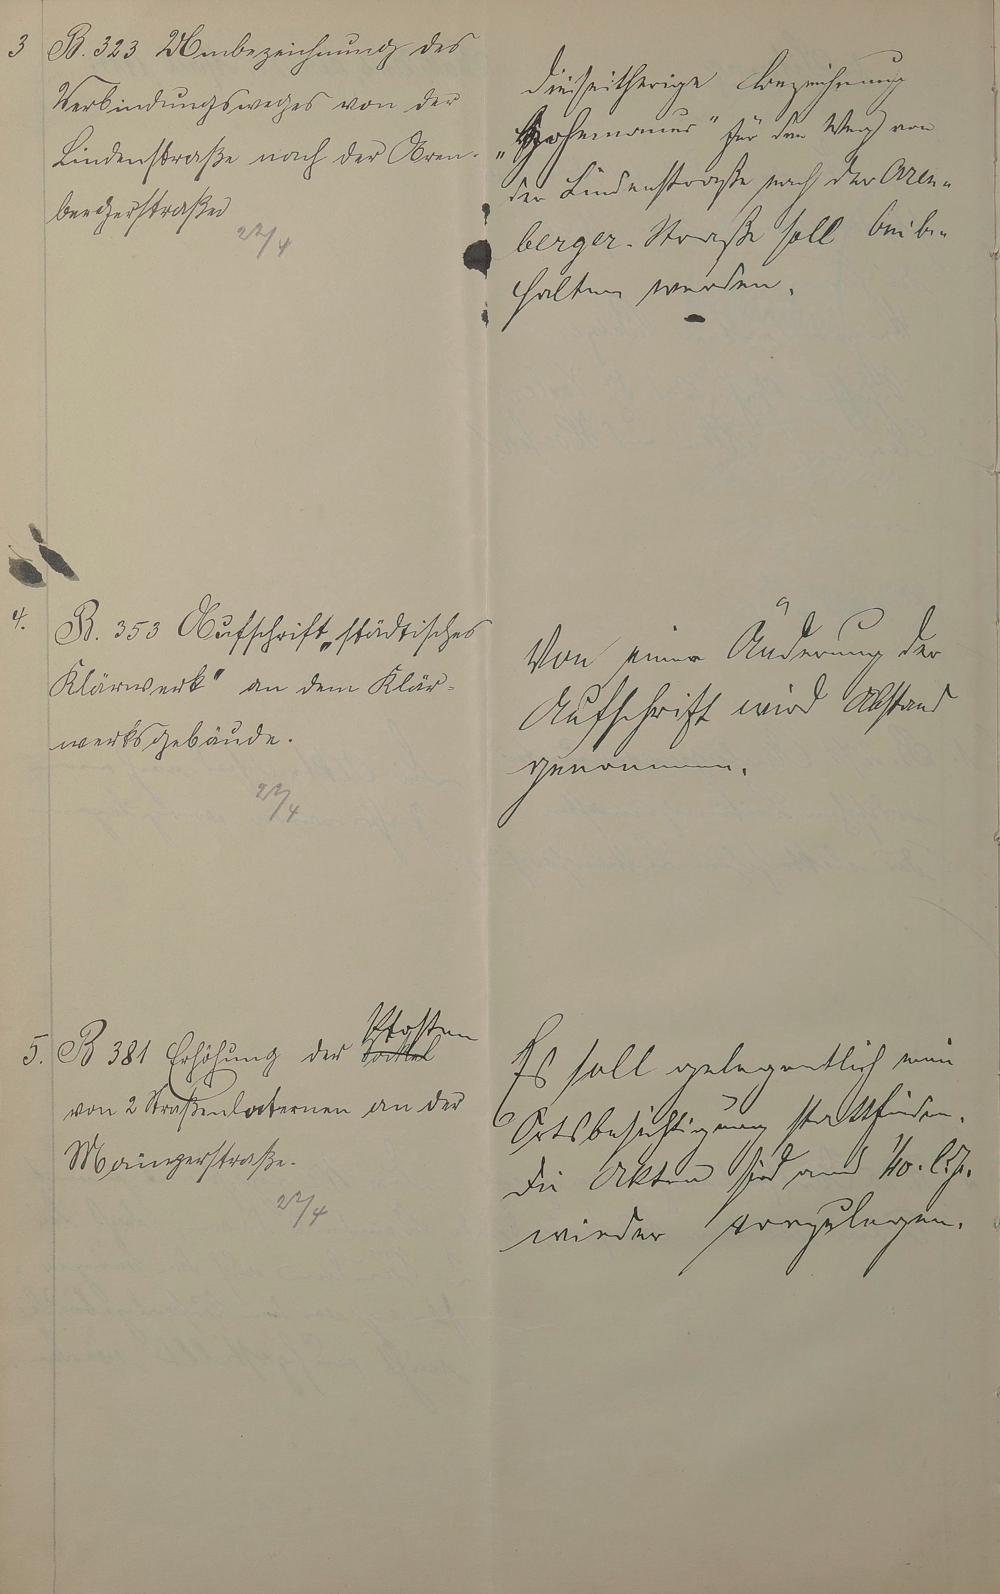 3 B. 323 Umbezeichnung des
Verbindungsweges von der
Lindenstraße nach der Aren-
bergerstraße
22/4
Die seitherige Bezeichnung
„Hohemauer" für den Weg von
der Lindenstraße nach der Aren-
berger-Straße soll beibe-
halten werden.
4. B. 353 Aufschrift „städtisches
Klärwerk" an dem Klär-
werksgebäude.
22/4
Von einer Änderung der
Aufschrift wird Abstand
genommen.
5. B 381 Erhöhung der Pfosten
von 2 Straßenlaternen an der
Mainzerstraße.
22/4
Es soll gelegentlich eine
Ortsbesichtigung stattfinden.
Die Akten sind 1/10. l. J.
wieder vorzulegen.